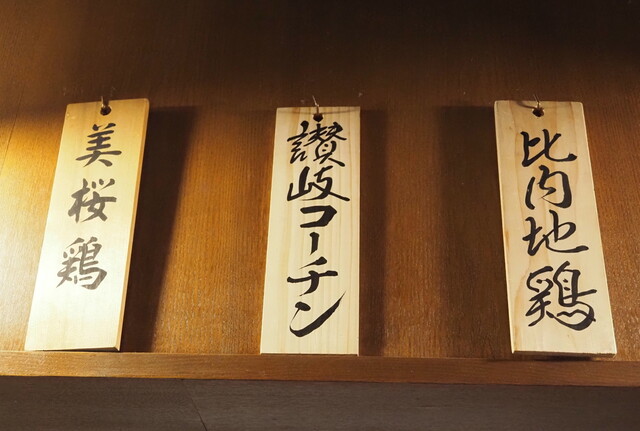 美桜鶏
讃岐コーチン
比内地鶏